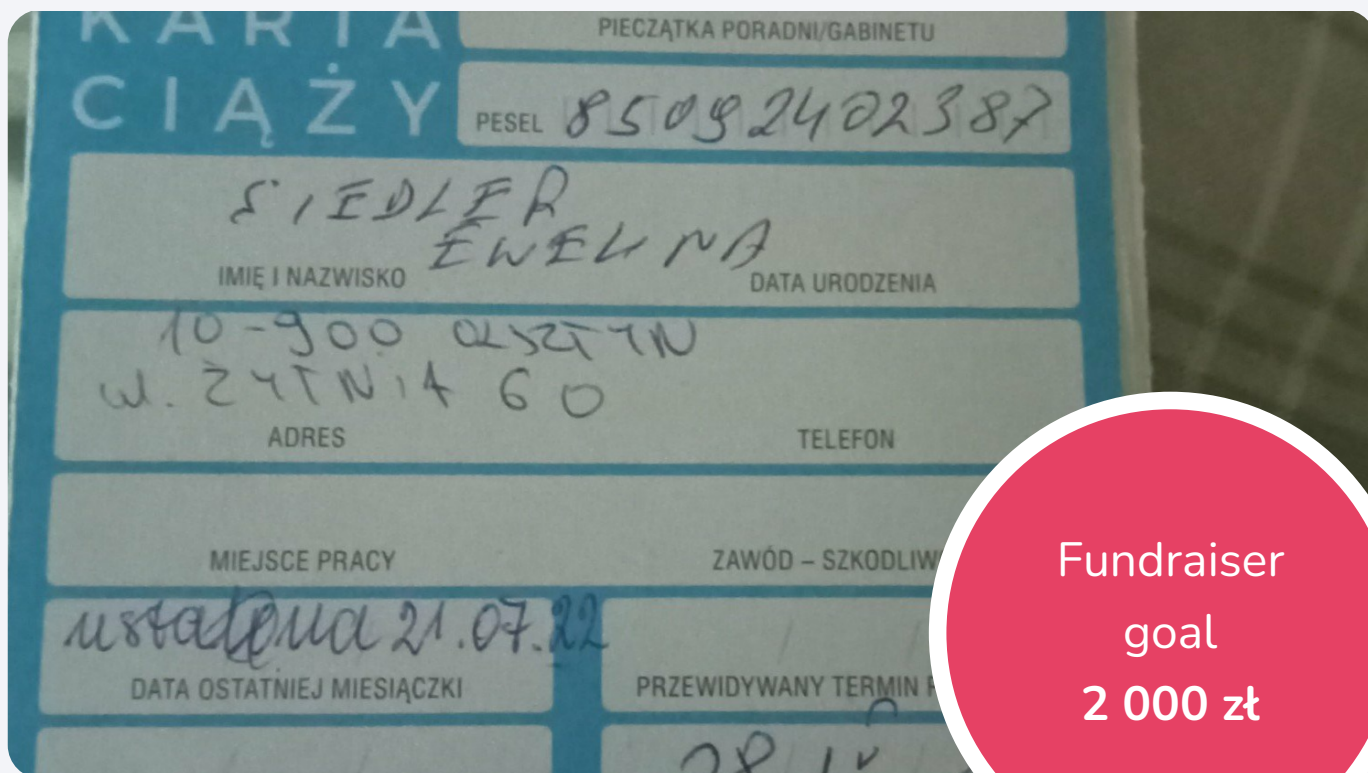 KARTA
CIĄŻY
PIECZĄTKA PORADNI/GABINETU
PESEL 85092402387
SIEDLER
EWELINA
IMIĘ I NAZWISKO DATA URODZENIA
10-900 OLSZTYN
ul. ŻYTNIA 60
ADRES TELEFON
MIEJSCE PRACY ZAWÓD –
ustalona 21.07.22
DATA OSTATNIEJ MIESIĄCZKI PRZEWIDYWANY TERMIN
Fundraiser
goal
2 000 zł